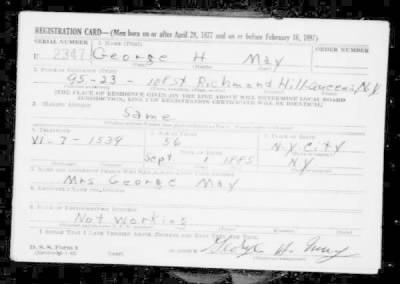 REGISTRATION CARD—(Men born on or after April 28, 1877 and on or before February 16, 1897)
SERIAL NUMBER 1. NAME (Print) ORDER NUMBER
U 2347 George H May
(First) (Middle) (Last)
2. PLACE OF RESIDENCE (Print)
95-23- 108 St Richmond Hill Queens N.Y.
[THE PLACE OF RESIDENCE GIVEN ON THE LINE ABOVE WILL DETERMINE LOCAL BOARD
JURISDICTION; LINE 2 OF REGISTRATION CERTIFICATE WILL BE IDENTICAL]
3. MAILING ADDRESS
Same
4. TELEPHONE 5. AGE IN YEARS 6. PLACE OF BIRTH
VI-7-1539 56 N.Y. City
Sept 1 1885 N.Y.
7. NAME AND ADDRESS OF PERSON WHO WILL ALWAYS KNOW YOUR ADDRESS
Mrs George May
8. EMPLOYER'S NAME AND ADDRESS
9. PLACE OF EMPLOYMENT OR BUSINESS
Not Working
I AFFIRM THAT I HAVE VERIFIED ABOVE ANSWERS AND THAT THEY ARE TRUE.
D. S. S. Form 1
George H. May